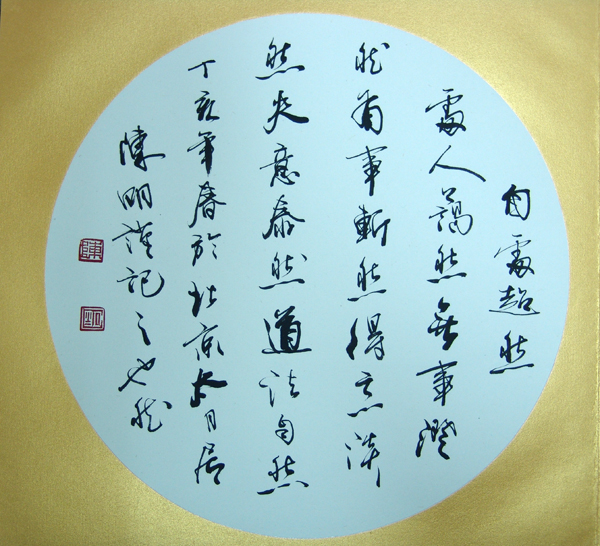 自處超然
處人藹然無事澄
然有事斬然得意淡
然失意泰然道法自然
丁亥年春於北京月居
陳明謹記之也然
陳